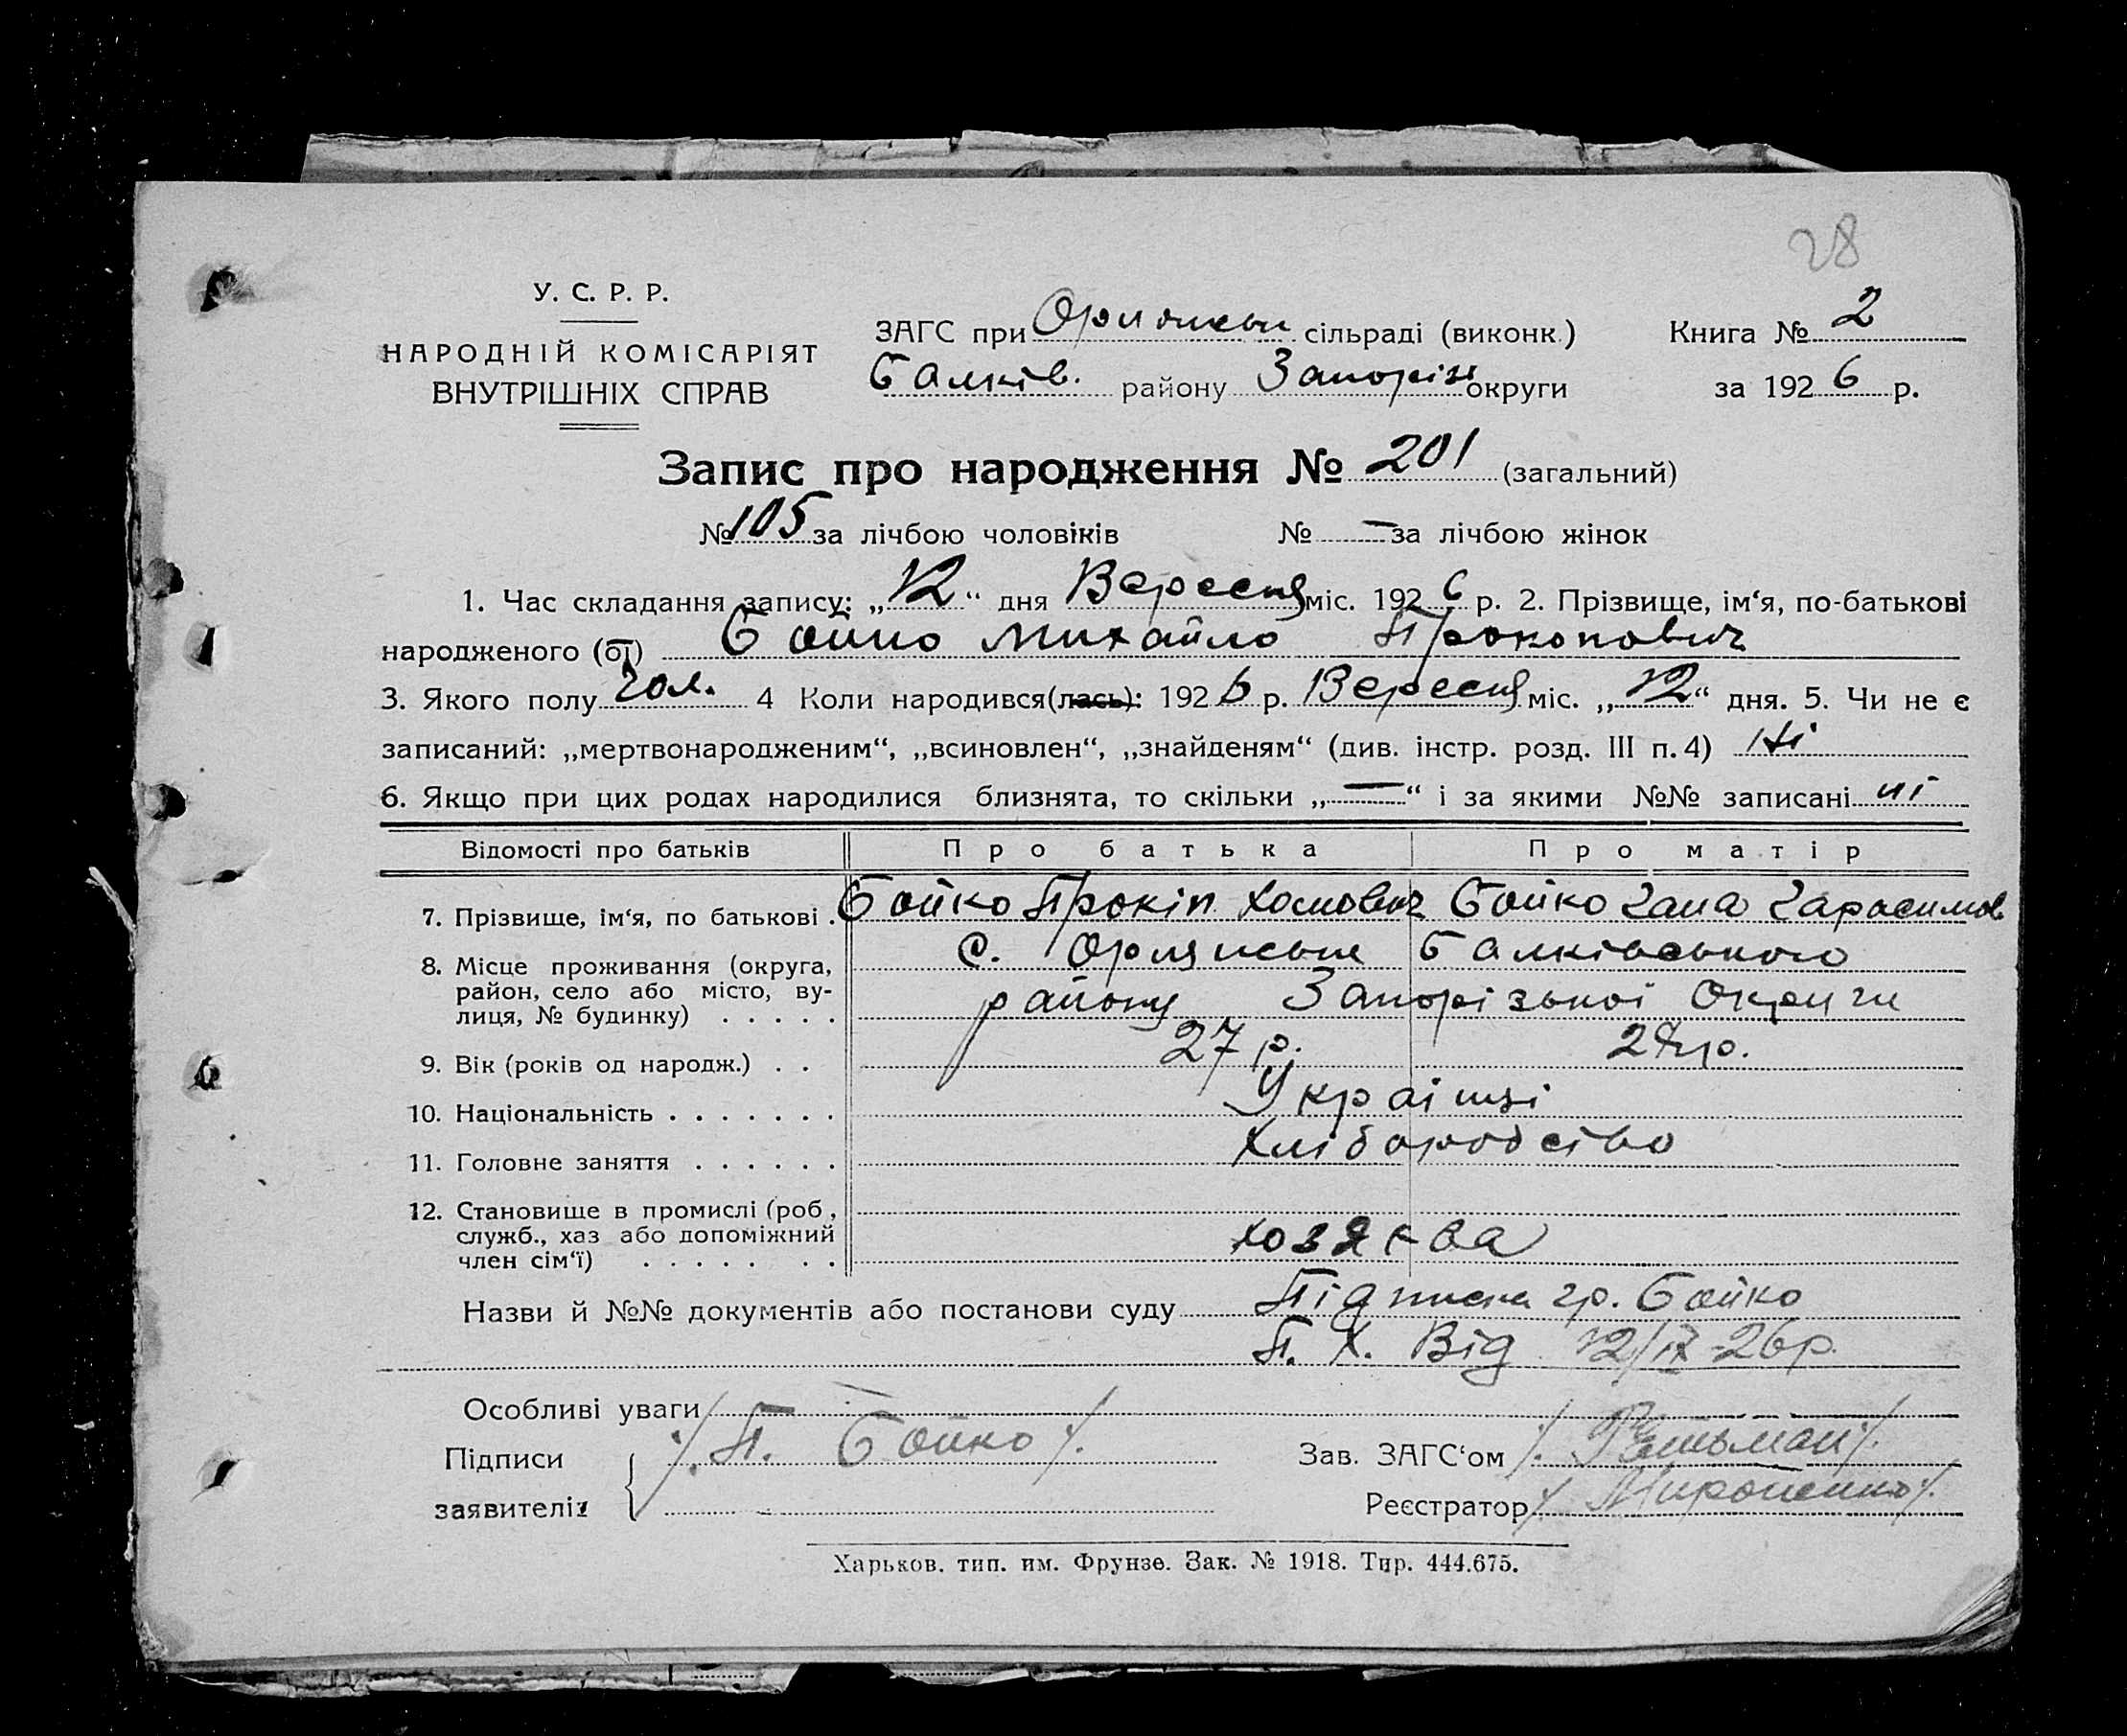 28
У. С. Р. Р.
НАРОДНІЙ КОМІСАРІЯТ
ВНУТРІШНІХ СПРАВ
ЗАГС при Орлянськ сільраді (виконк.)
Балків. району Запоріз округи
Книга № 2
за 1926 р.
Запис про народження № 201 (загальний)
№ 105 за лічбою чоловіків № — за лічбою жінок
1. Час складання запису: „12“ дня Вересня міс. 1926 р. 2. Прізвище, ім‘я, по-батькові
народженого (ої) Бойко Михайло Прокопович
3. Якого полу чол. 4 Коли народився(лась): 1926 р. Вересня міс. „12“ дня. 5. Чи не є
записаний: „мертвонародженим“, „всиновлен“, „знайденям“ (див. інстр. розд. III п. 4) Ні
6. Якщо при цих родах народилися близнята, то скільки „—“ і за якими №№ записані ні
Відомості про батьків Про батька Про матір
7. Прізвище, ім‘я, по батькові . Бойко Прокіп Хомович Бойко Гарасимов
8. Місце проживання (округа, с. Орлянське Балківського
район, село або місто, ву-
лиця, № будинку) . . . . . району Запорізької Округи
9. Вік (років од народж.) . . 27 р. р.
10. Національність . . . . . . . Українці
11. Головне заняття . . . . . . Хліборобство
12. Становище в промислі (роб ,
служб., хаз або допоміжний
член сім‘ї) . . . . . . .
Назви й №№ документів або постанови суду Підписка гр. Бойко
П. Х. Від 12/IX-26р.
Особливі уваги —
Підписи /. П. Бойко /.
заявителів
Зав. ЗАГС‘ом
Реєстратор /. Мироненко /.
Харьков. тип. им. Фрунзе. Зак. № 1918. Тир. 444.675.